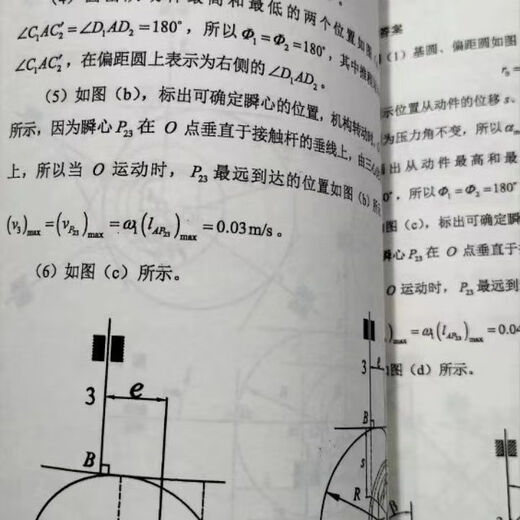 最高和最低的两个位置如图
∠C₁AC₂′=∠D₁AD₂=180°，所以Φ₁=Φ₂=180°，其中
∠C₁AC₂′，在偏距圆上表示为右侧的∠D₁AD₂。
（5）如图（b），标出可确定瞬心的位置，机构转动时，
所示，因为瞬心P₂₃在 O 点垂直于接触杆的垂线上，由三心
上，所以当 O 运动时，P₂₃最远到达的位置如图（b）所
(v₃)max=(v_P₂₃)max=ω₁(l_AP₂₃)max=0.03m/s。
（6）如图（c）所示。
3
e
B
答案
（1）基圆、偏距圆如图
r₀=
示位置从动件的位移 s、
为压力角不变，所以 α
出从动件最高和最
0°，所以Φ₁=Φ₂=180°
图（c），标出可确定瞬
心P₂₃在 O 点垂直
O 运动时，P₂₃最远到
)max=ω₁(l_AP₂₃)max=0.04
图（d）所示。
3
e
B
s
R
3
B